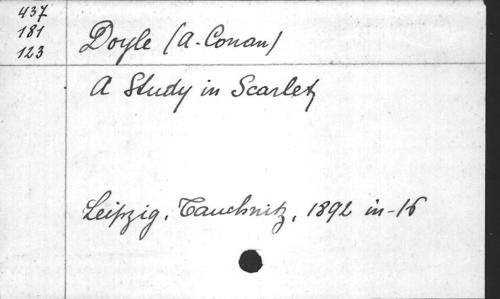 437
181
123
Doyle (A. Conan)
A Study in Scarlet
Leipzig, Tauchnitz, 1892 in-16